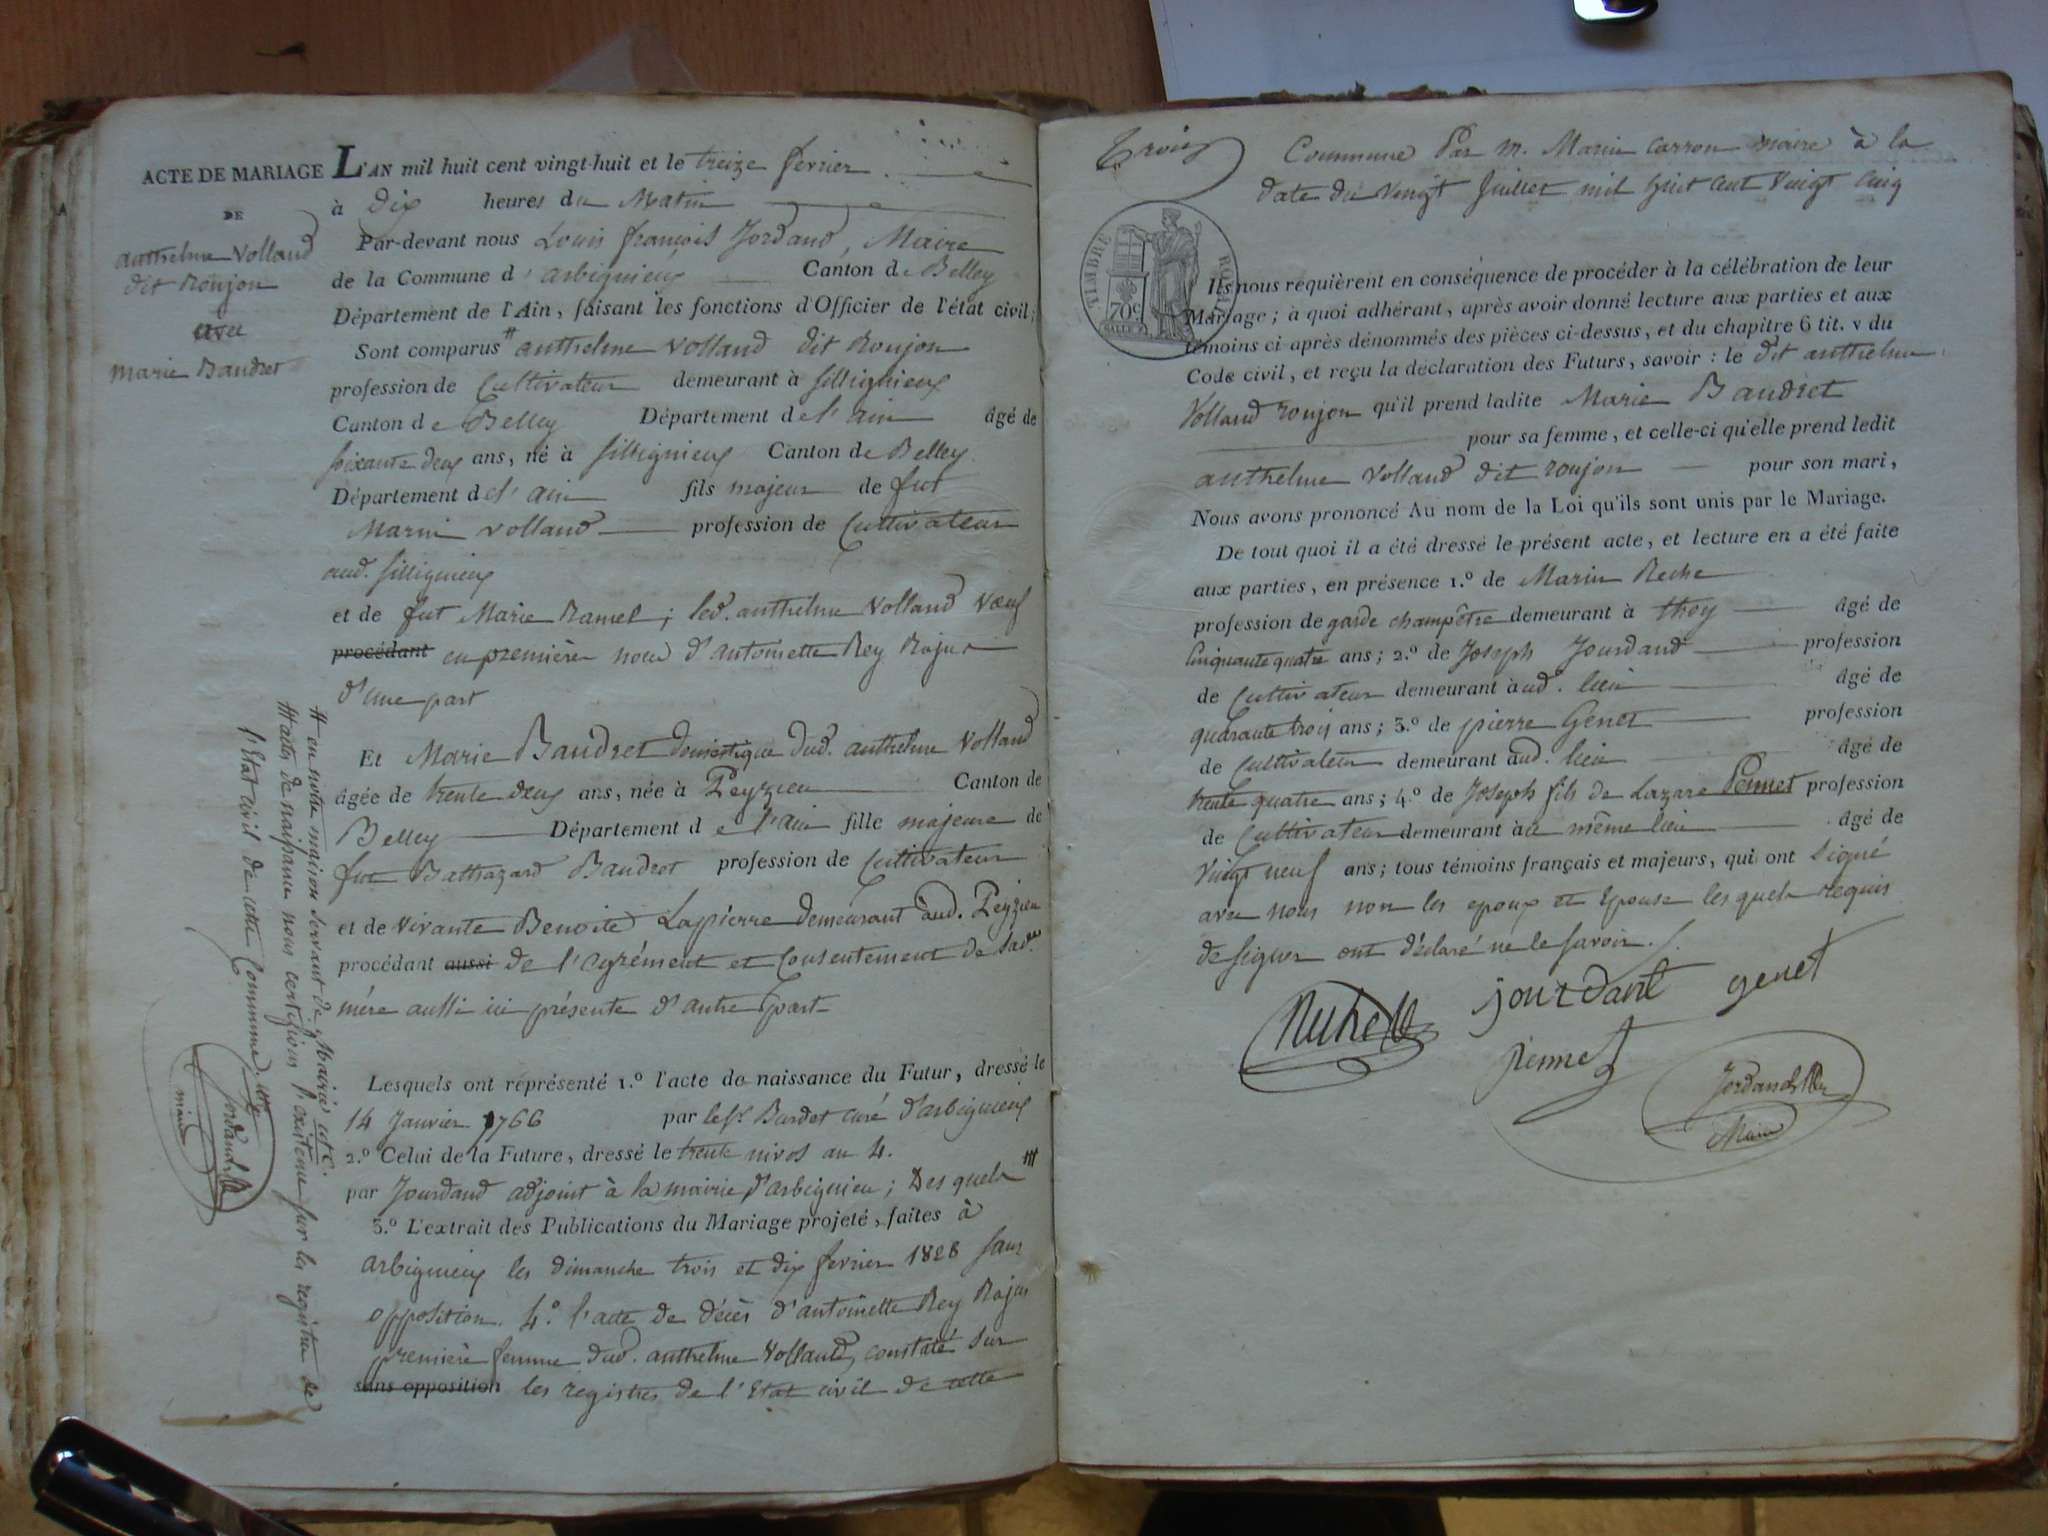 ACTE DE MARIAGE
DE
anthelme Volland
dit Roujon
avec
marie Baudret
L'AN mil huit cent vingt-huit et le treize fevrier
à Dix heures du Matin
Par-devant nous Louis françois Jordand, Maire
de la Commune d'arbignieux Canton de Belley
Département de l'Ain, faisant les fonctions d'Officier de l'état civil;
Sont comparus # anthelme Volland dit Roujon
profession de Cultivateur demeurant à Sillignieux
Canton de Belley Département de l'ain âgé de
soixante deux ans, né à Sillignieux Canton de Belley
Département de l'ain fils majeur de fut
Marin Volland profession de Cultivateur
aud. Sillignieux
et de fut Marie Ramel; led. anthelme Volland Vœuf
procédant en première noce d'antoinette Rey Rojus
d'une part
Et Marie Baudret Domestique dud. anthelme Volland
âgée de trente deux ans, née à Peyzieu Canton de
Belley Département de l'ain fille majeure de
fut Balthazard Baudret profession de Cultivateur
et de vivante Benoite Lapierre demeurant aud. Peyzieu
procédant aussi de l'agrément et Consentement de sad.
mére aussi ici présente d'autre part
Lesquels ont représenté 1.º l'acte de naissance du Futur, dressé le
14 Janvier 1766 par le Sr. Bardet curé d'arbignieux
2.º Celui de la Future, dressé le trente nivos an 4.
par Jourdand adjoint à la mairie d'arbignieu; Des quels ###
3.º L'extrait des Publications du Mariage projeté, faites à
arbignieux les dimanche trois et dix fevrier 1828 sans
opposition. 4.º l'acte de décès d'antoinette Rey Rojus
première femme dud. anthelme Volland, constaté sur
sans opposition les registres de l'Etat civil de cette
# en notre maison servant de Mairie etc.
### actes de naissance nous certifions l'existence sur les registres de
l'Etat civil de cette Commune.
Jordand
maire
Trois
Commune Par m. Marin Carron maire à la
date du vingt Juillet mil huit cent vingt cinq
TIMBRE ROYAL
70c
Ils nous requièrent en conséquence de procéder à la célébration de leur
Mariage; à quoi adhérant, après avoir donné lecture aux parties et aux
témoins ci-après dénommés des pièces ci-dessus, et du chapitre 6 tit. v du
Code civil, et reçu la déclaration des Futurs, savoir: le dit anthelme
Volland roujon qu'il prend ladite Marie Baudret
pour sa femme, et celle-ci qu'elle prend ledit
anthelme Volland dit roujon pour son mari,
Nous avons prononcé Au nom de la Loi qu'ils sont unis par le Mariage.
De tout quoi il a été dressé le présent acte, et lecture en a été faite
aux parties, en présence 1.º de Marin Reche
profession de garde champêtre demeurant à thoy âgé de
Cinquante quatre ans; 2.º de Joseph Jourdand profession
de Cultivateur demeurant aud. lieu âgé de
quarante trois ans; 3.º de pierre Genet profession
de Cultivateur demeurant aud. lieu âgé de
trente quatre ans; 4.º de Joseph fils de Lazare Pennet profession
de Cultivateur demeurant au même lieu âgé de
Vingt neuf ans; tous témoins français et majeurs, qui ont signé
avec nous non les epoux et Epouse les quels requis
de signer ont déclaré ne le savoir.
jourdant genet
Jordand
Maire